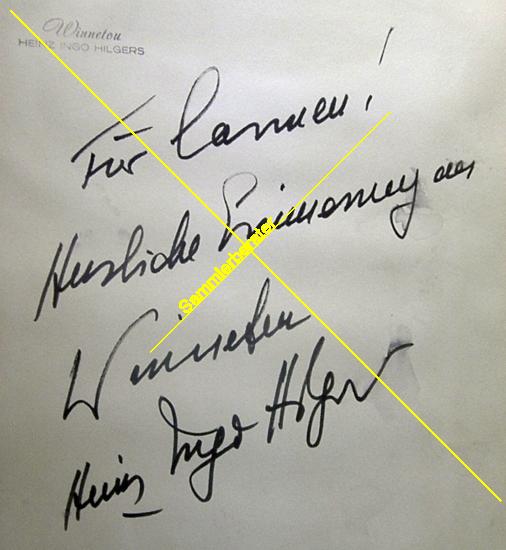 Winnetou
HEINZ INGO HILGERS
Für Carmen!
Herzliche Erinnerung an
Sammlerberater
Winnetou
Heinz Ingo Hilgers